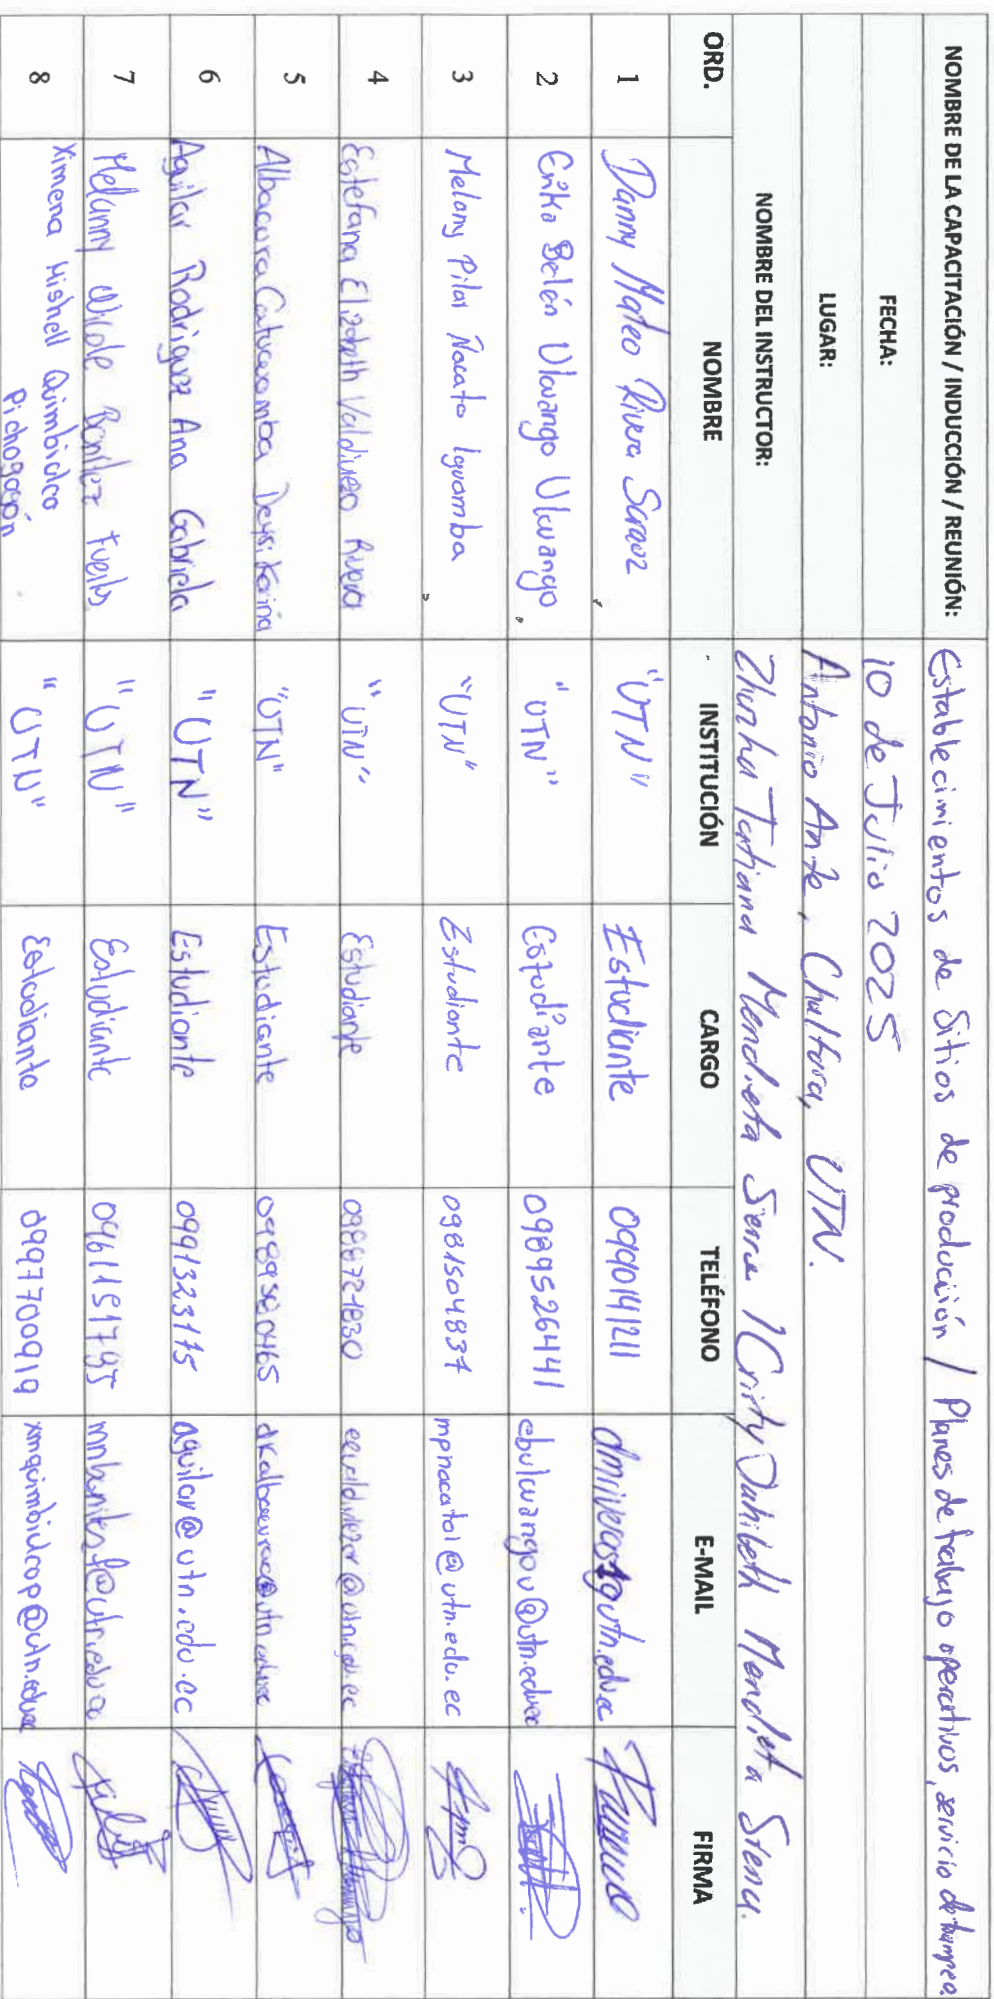 NOMBRE DE LA CAPACITACIÓN / INDUCCIÓN / REUNIÓN: Establecimientos de Sitios de producción / Planes de trabajo operativos, servicio de
FECHA: 10 de Julio 2025
LUGAR: Antonio Ante, Chaltura, UTN.
NOMBRE DEL INSTRUCTOR: Tatiana Mendieta Sierra / Cristy Mendieta
ORD. NOMBRE INSTITUCIÓN CARGO TELÉFONO E-MAIL FIRMA
1 Danny Mateo Rivera "UTN" Estudiante
2 Erika Belén Ulcuango Ulcuango "UTN" Estudiante 0989526441 ebulcuangou@utn.edu.ec
3 Melany Pilar Ñacato Iguamba "UTN" Estudiante 0981504837 mpnacatoi@utn.edu.ec
4 Estefana Elizabeth Valdiviezo Rivera "UTN" Estudiante 0988721830
5 Albacura Catucuamba Deysi Karina "UTN" Estudiante
6 Aguilar Rodriguez Ana Gabriela "UTN" Estudiante 0991323175 aguilar@utn.edu.ec
7 Melanny Nicole Benítez "UTN" Estudiante 0961151795
8 Ximena Mishell Quimbiulco "UTN" Estudiante 0997700919 xmquimbiulcop@utn.edu.ec
Pichogagón